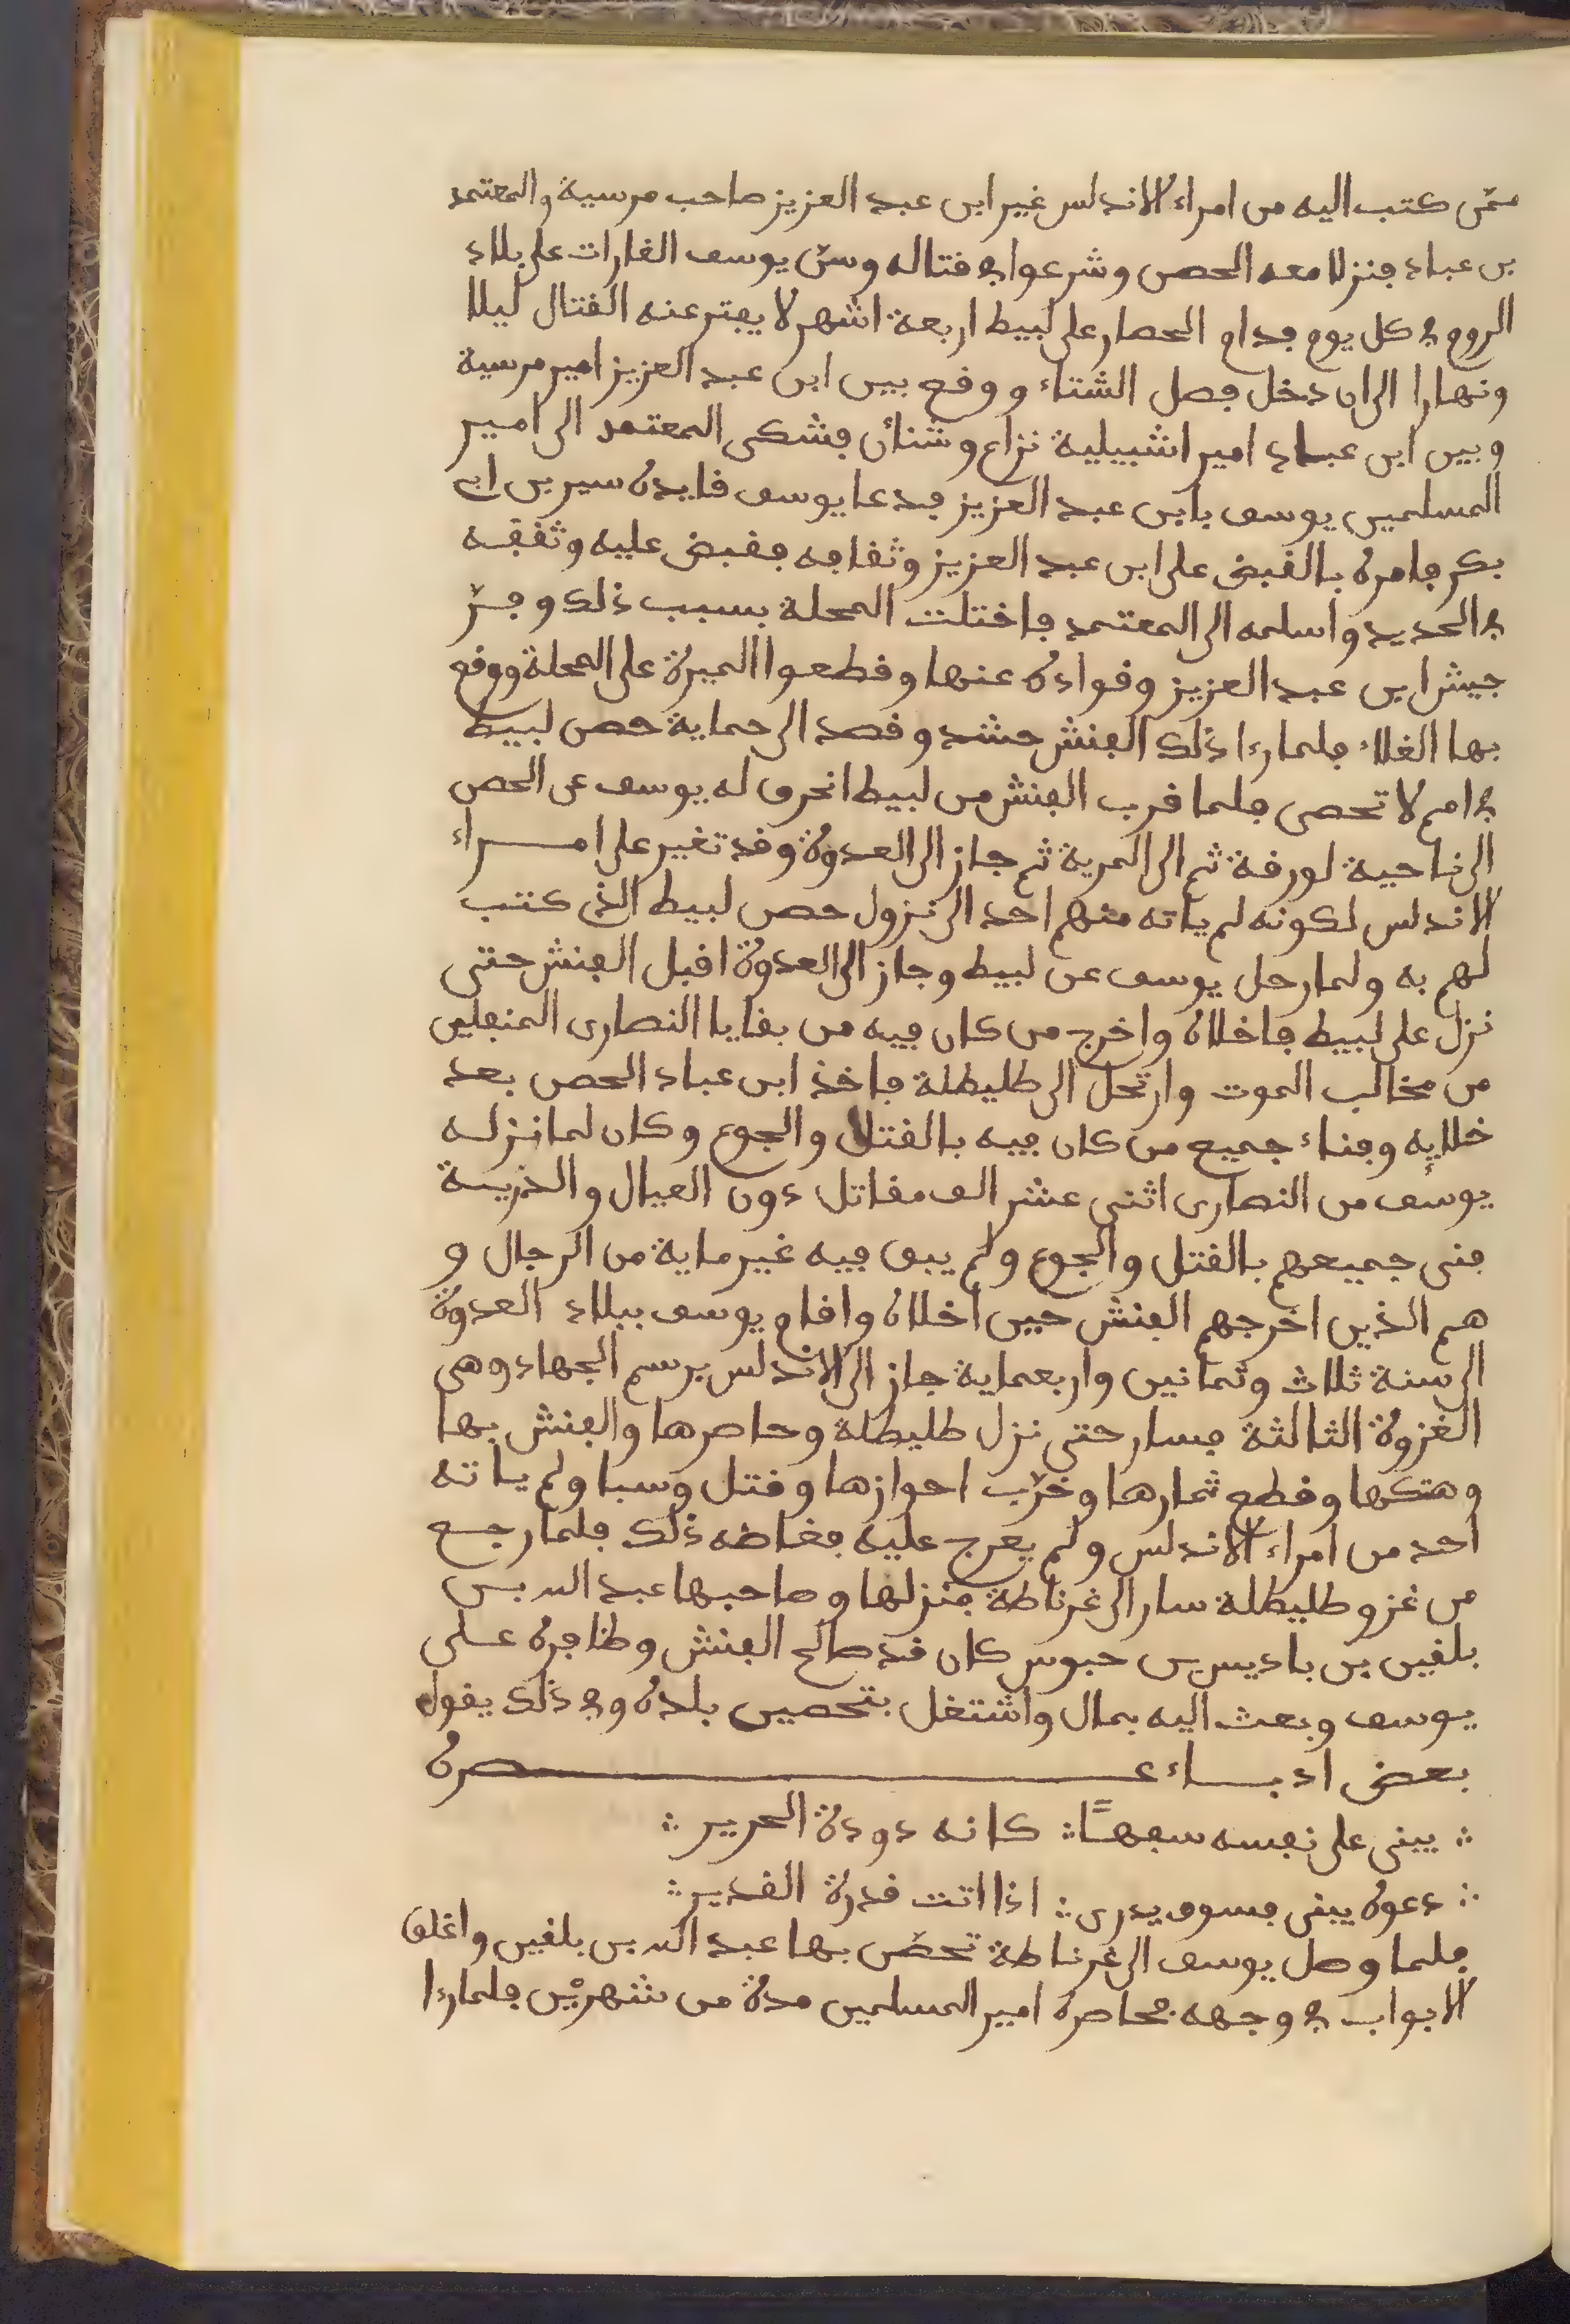 ممّن كتب اليه من امراء الاندلس غير ابن عبد العزيز صاحب مرسية والمعتمد
بن عباد فنزلا معه الحصن وشرعوا في قتاله وشنّ يوسف الغارات على بلاد
الروم في كل يوم فدام الحصار على لبيط اربعة اشهر لا يفتر عنه القتال ليلا
ونهارا الى ان دخل فصل الشتاء ووقع بين ابن عبد العزيز امير مرسية
وبين ابن عباد امير اشبيلية نزاع وشنأن فشكى المعتمد الى امير
المسلمين يوسف بابن عبد العزيز فدعا يوسف قايده سير بن ابي
بكر فامره بالقبض على ابن عبد العزيز وثقافه فقبض عليه وثقفه
في الحديد واسلمه الى المعتمد فاختلت المحلة بسبب ذلك وفرّ
جيش ابن عبد العزيز وقواده عنها وقطعوا الميرة على المحلة ووقع
بها الغلاء فلما رءا ذلك الفنش حشد وقصد الى حماية حصن لبيط
في امم لا تحصى فلما قرب الفنش من لبيط انحرف له يوسف عن الحصن
الى ناحية لورقة ثم الى المرية ثم جاز الى العدوة وقد تغير على امراء
الاندلس لكونه لم ياته منهم احد الى نزول حصن لبيط الذي كتب
لهم به ولما رحل يوسف عن لبيط وجاز الى العدوة اقبل الفنش حتى
نزل على لبيط فاخلاه واخرج من كان فيه من بقايا النصارى المنفلين
من مخالب الموت وارتحل الى طليطلة فاخذ ابن عباد الحصن بعد
خلايه وفناء جميع من كان فيه بالقتل والجوع وكان لما نزله
يوسف من النصارى اثنى عشر الف مقاتل دون العيال والذرية
فنى جميعهم بالقتل والجوع ولم يبق فيه غير ماية من الرجال و
هم الذين اخرجهم الفنش حين اخلاه واقام يوسف ببلاد العدوة
الى سنة ثلاث وثمانين واربعماية جاز الى الاندلس برسم الجهاد وهى
الغزوة الثالثة فسار حتى نزل طليطلة وحاصرها والفنش بها
وهتكها وقطع ثمارها وخرّب احوازها وقتل وسبا ولم ياته
احد من امراء الاندلس ولم يعرج عليه فغاضه ذلك فلما رجع
من غزو طليطلة سار الى غرناطة فنزلها وصاحبها عبد الله بن
بلقين بن باديس بن حبوس كان قد صالح الفنش وظافره على
يوسف وبعث اليه بمال واشتغل بتحصين بلده وفي ذلك يقول
بعض ادباء عصره
∴ يبنى على نفسه سفهًا ∴ كانه دودة الحرير ∴
∴ دعوه يبنى فسوف يدرى ∴ اذا اتت قدرة القدير ∴
فلما وصل يوسف الى غرناطة تحصّن بها عبد الله بن بلقين واغلق
الابواب في وجهه فحاصره امير المسلمين مدة من شهرين فلما رءا